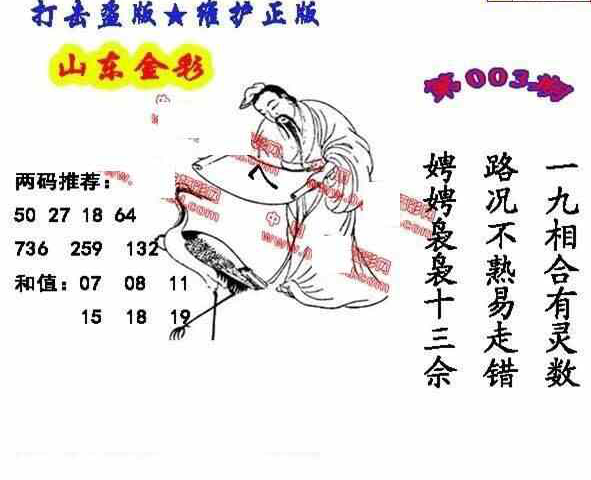 打击盗版★维护正版
山东金彩
第003期
两码推荐：
50 27 18 64
736 259 132
和值：07 08 11
15 18 19
一九相合有灵数
路况不熟易走错
娉娉袅袅十三余